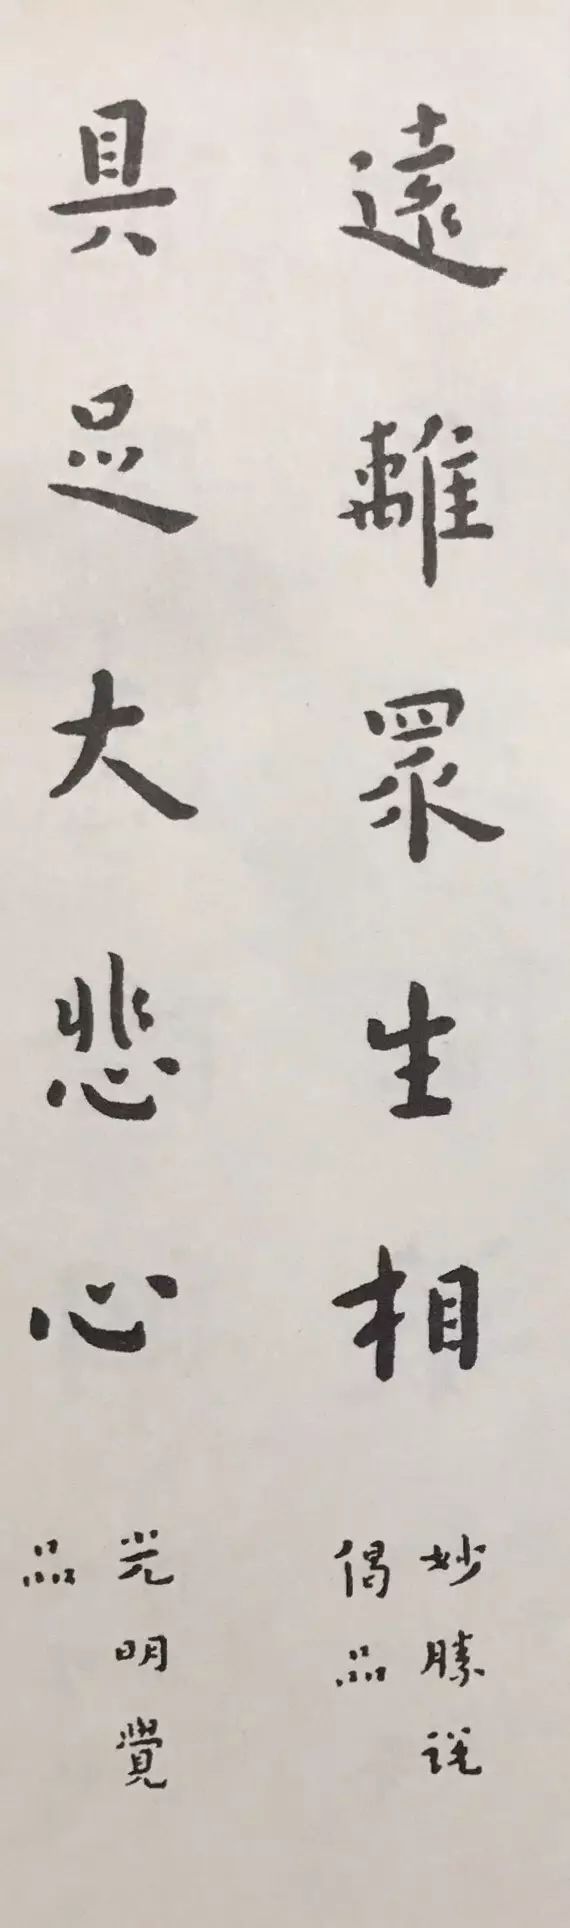 遠離眾生相
妙勝說
偈品
具足大悲心
光明覺
品